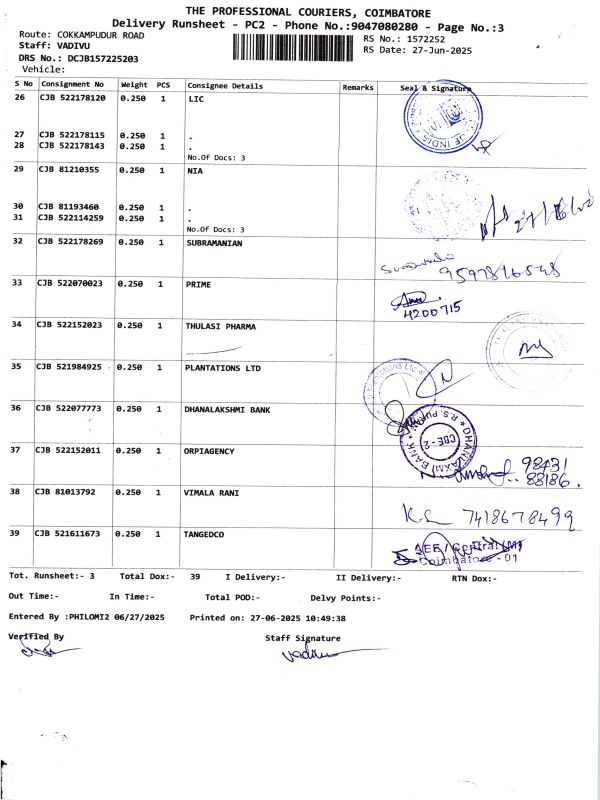 THE PROFESSIONAL COURIERS, COIMBATORE
Delivery Runsheet - PC2 - Phone No.:9047080280 - Page No.:3
Route: COKKAMPUDUR ROAD
RS No.: 1572252
Staff: VADIVU
RS Date: 27-Jun-2025
DRS No.: DCJB157225203
Vehicle:
S No Consignment No Weight PCS Consignee Details Remarks Seal & Signature
26 CJB 522178120 0.250 1 LIC
OF INDIA
27 CJB 522178115 0.250 1 .
28 CJB 522178143 0.250 1 .
No.Of Docs: 3
29 CJB 81210355 0.250 1 NIA
30 CJB 81193460 0.250 1 .
31 CJB 522114259 0.250 1 .
No.Of Docs: 3
32 CJB 522178269 0.250 1 SUBRAMANIAN
9597816548
33 CJB 522070023 0.250 1 PRIME
4200715
34 CJB 522152023 0.250 1 THULASI PHARMA
35 CJB 521984925 0.250 1 PLANTATIONS LTD
36 CJB 522077773 0.250 1 DHANALAKSHMI BANK
DHANLAXMI BANK * R.S. PURAM
CBE - 2
37 CJB 522152011 0.250 1 ORPIAGENCY
98431
88186.
38 CJB 81013792 0.250 1 VIMALA RANI
7418678499
39 CJB 521611673 0.250 1 TANGEDCO
AEE / Central (M)
Coimbatore - 01
Tot. Runsheet:- 3 Total Dox:- 39 I Delivery:- II Delivery:- RTN Dox:-
Out Time:- In Time:- Total POD:- Delvy Points:-
Entered By :PHILOMI2 06/27/2025 Printed on: 27-06-2025 10:49:38
Verified By Staff Signature